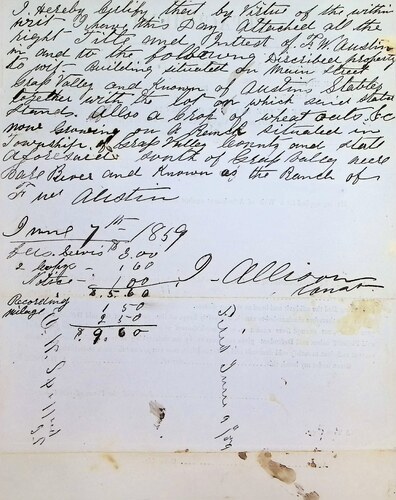 I Hereby Certify that by Virtue of the within
writ I have this Day Attached all the
right Title and Interest of F. W. Austin
in and to the following Described property
to wit Building situated on Main Street
Grass Valley and Known as Austins Stables
together with the lot on which said Stable
Stand. Also a Crop of wheat oats &c
now Growing on a Ranch situated in
Township of Grass Valley County and state
aforesaid south of Grass Valley near
Bare River and Known as the Ranch of
F W Austin
June 7th 1859
Servis 3.00
2 Copys - 1 60
1 00
8. 5. 60
J - Allison
Const
Recording 1 50
Milage 2 50
$9. 60